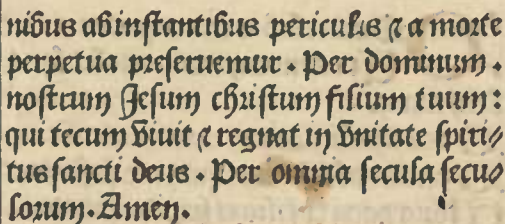 nibus ab inſtantibus periculis ⁊ a morte
perpetua preſeruemur. Per dominum.
noſtrum Jeſum chriſtum filium tuum:
qui tecum viuit ⁊ regnat in vnitate ſpiri/
tus ſancti deus. Per omnia ſecula ſecu/
lorum. Amen.